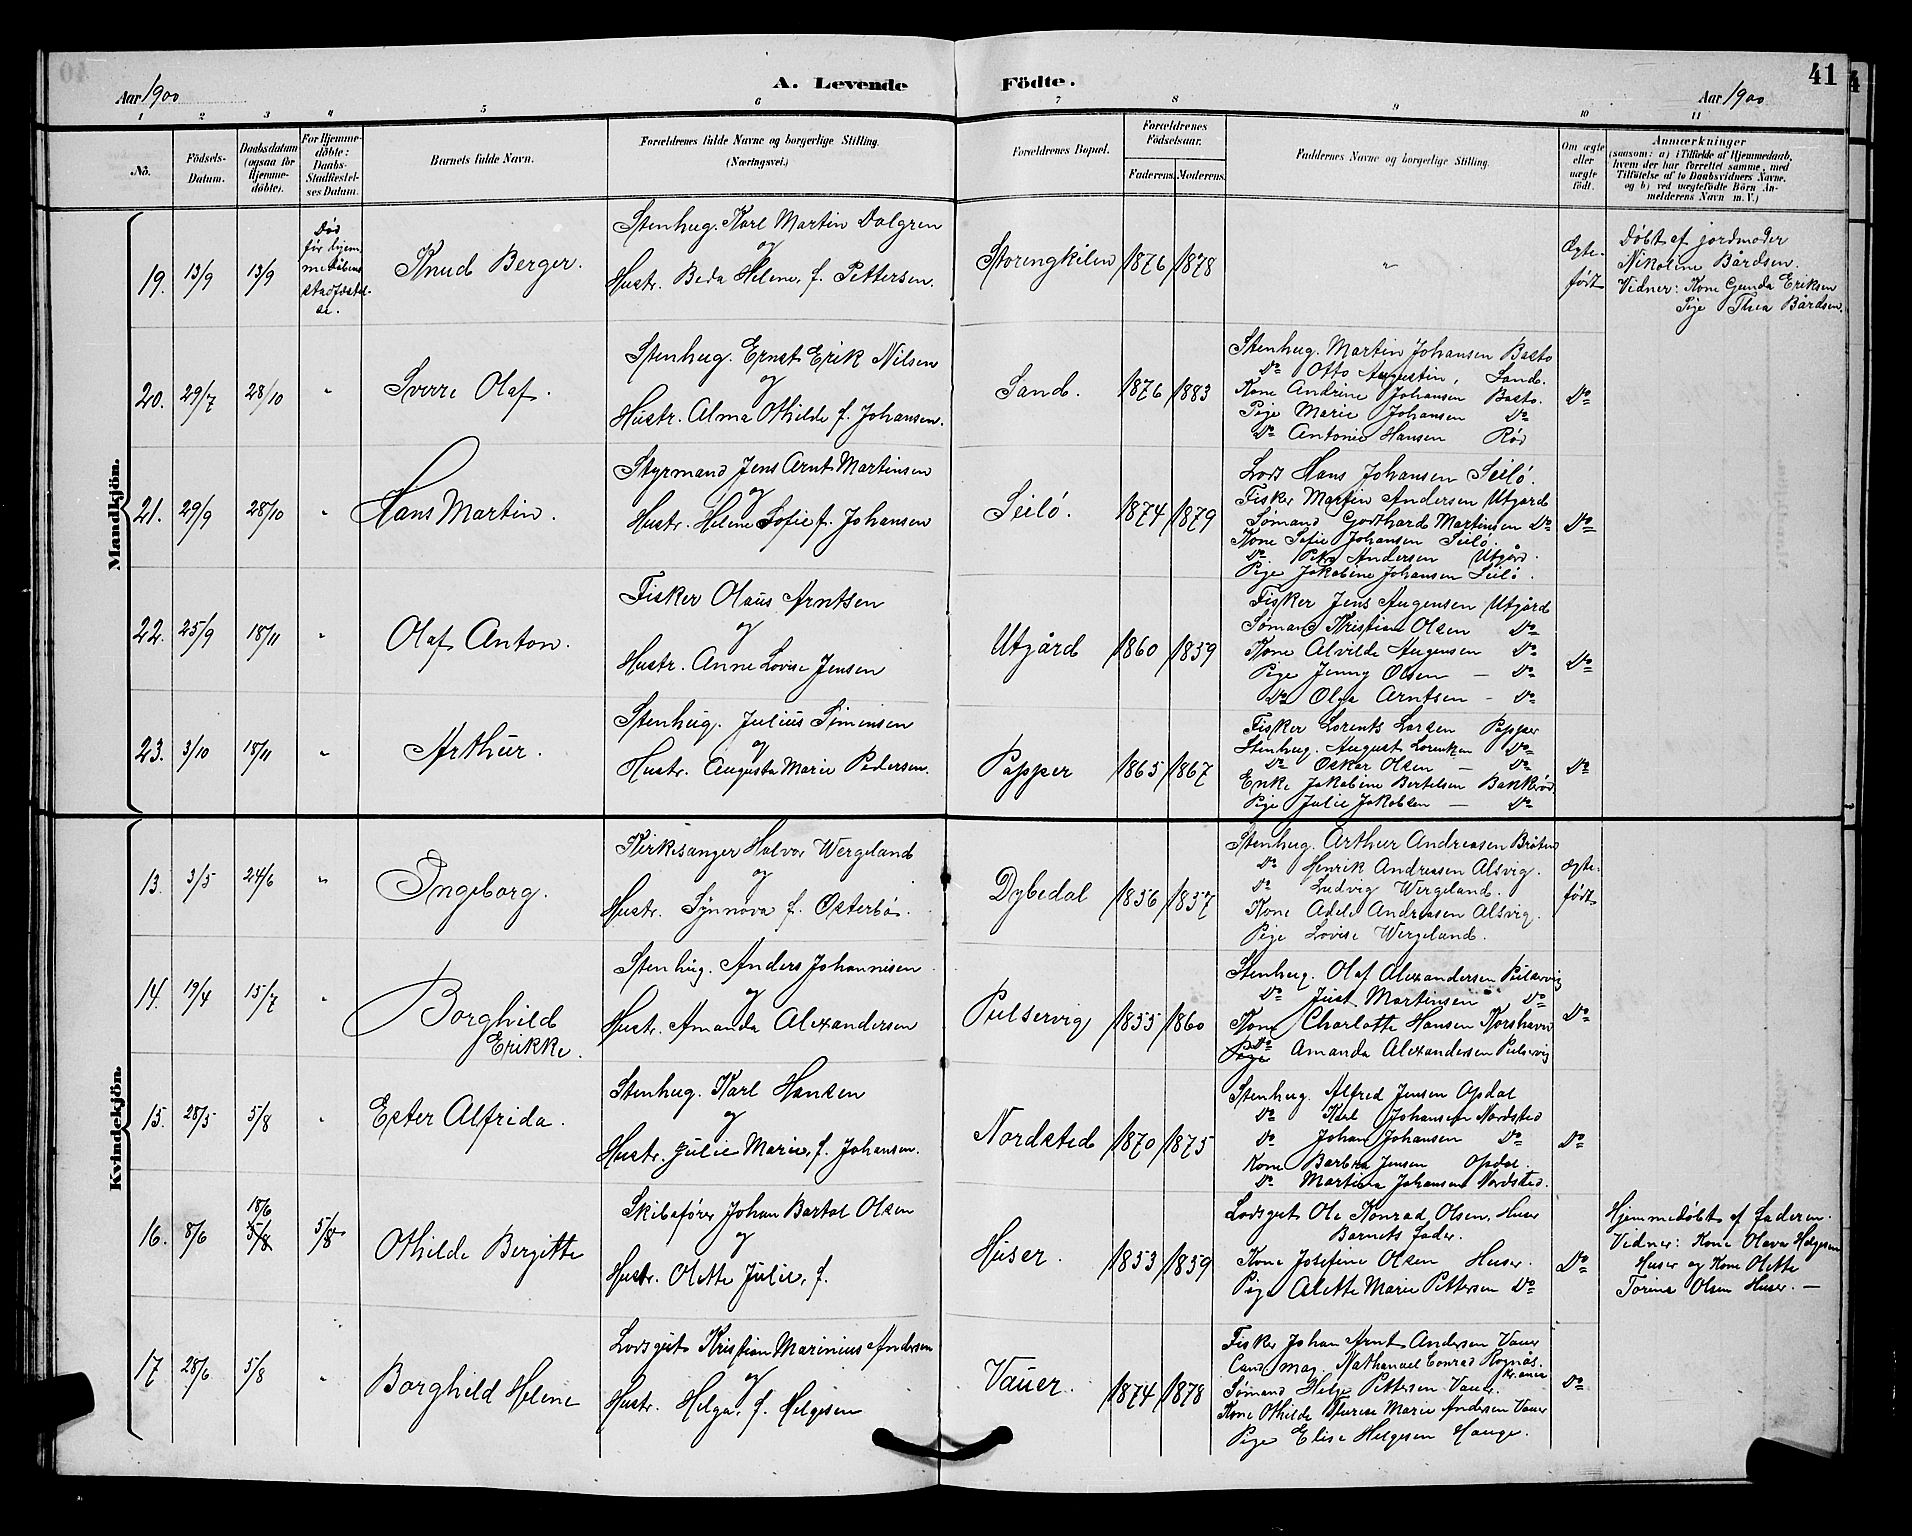 Aar 1900
A. Levende
Födte.
Aar 1900
41
1 2 3 4 5 6 7 8 9 10 11
No.
Födsels-
Datum.
Daabsdatum
(ogsaa for
Hjemme-
döbte).
For Hjemme-
döbte:
Daabs-
Stadfæstel-
ses Datum.
Barnets fulde Navn.
Forældrenes fulde Navne og borgerlige Stilling.
(Næringsvei.)
Forældrenes Bopæl.
Forældrenes
Födselsaar.
Faderens. Moderens.
Faddernes Navne og borgerlige Stilling.
Om ægte
eller
uægte
födt.
Anmærkninger
(saasom: a) i Tilfælde af Hjemmedaab,
hvem der har forrettet samme, med
Tilföielse af to Daabsvidners Navne.
og b) ved uægtefödte Börn An-
melderens Navn m. V.)
Mandkjön.
19. 13/9 13/9
Död
för hjem
medåbens
stadfæstel-
se.
Knud Berger.
Stenhug. Karl Martin Dalgren
og
Hustr. Beda Helene, f. Pettersen.
Storengkilen 1876 1878
"
Ægte-
født
Døbt af jordmoder
Nikoline Bårdsen.
Vidner: Kone Gunda Eriksen
Pige Thea Bårdsen.
20. 29/7 28/10 "
Sverre Olaf.
Stenhug. Ernst Erik Nilsen
og
Hustr. Alma Othilde f. Johansen.
Sand. 1876 1883
Stenhug. Martin Johansen Basto
Do Otto Augustin, Sand.
Kone Andrine Johansen Basto.
Pige Marie Johansen Do
Do Antonie Hansen Rød
Do
21. 29/9 28/10 "
Hans Martin.
Styrmand Jens Arnt Martinsen
og
Hustr. Helene Sofie f. Johansen
Seilö. 1874 1879
Lods Hans Johansen Seilö.
Fisker Martin Andersen Utgård
Sømand Godthard Martinsen Do
Kone Sofie Johansen Seilö.
Do Petra Andersen Utgård.
Pige Jakobine Johansen Seilö.
Do
22. 25/9 18/11 "
Olaf Anton.
Fisker Olaus Arntsen
og
Hustr. Anne Lovise Jensen
Utgård 1860 1859
Fisker Jens Augensen Utgård
Sømand Kristian Olsen Do
Kone Alvilde Augensen Do
Pige Jenny Olsen – Do
Do Olga Arntsen – Do
Do
23. 3/10 18/11 "
Arthur.
Stenhug. Julius Simensen
og
Hustr. Augusta Marie Pedersen.
Papper 1865 1867
Fisker Lorents Larsen Papper
Stenhug. August Lorentzen Do
Do Oskar Olsen – Do
Enke Jakobine Bertelsen Bankerød
Pige Julie Jakobsen – Do
Do
Kvindekjön.
13. 3/5 24/6 "
Ingeborg.
Kirkesanger Halvor Wergeland
og
Hustr. Synnøva f. Østerbö.
Dybedal 1856 1857
Stenhug. Arthur Andreasen Bråten
Do Henrik Andreasen Alsvig.
Do Ludvig Wergeland.
Kone Adele Andreasen Alsvig.
Pige Lovise Wergeland.
Ægte-
født
14. 19/4 15/7 "
Borghild
Erikke.
Stenhug. Anders Johannisen
og
Hustr. Amanda Alexandersen
Pulservig 1855 1860
Stenhug. Olaf Alexandersen Pulservig
Do Just Martinsen Do
Kone Charlotte Hansen Korshavn
Do Amanda Alexandersen Pulservig
Do
15. 28/5 5/8 "
Ester Alfrida.
Stenhug. Karl Hansen
og
Hustr. Julie Marie, f. Johansen.
Nordsted 1870 1875
Stenhug. Alfred Jensen Opdal
Do Karl Johansen Nordsted
Do Johan Johansen Do
Kone Barbra Jensen Opdal.
Do Martina Johansen Nordsted.
Do
16. 8/6 18/6 5/8 5/8
Othilde Bergitte
Skibsfører Johan Bartol Olsen
og
Hustr. Olette Julie, f.
Huser. 1853 1859
Lodsgut Ole Konrad Olsen, Huser
Barnets fader.
Kone Josefine Olsen Huser.
Pige Alette Marie Pettersen Do
Do
Hjemmedøbt af faderen.
Vidner: Kone Olava Helgesen
Huser og Kone Olette
Torine Olsen Huser. –
17 28/6 5/8 "
Borghild Helene
Lodsgut Kristian Marinius Andersen
og
Hustr. Helga, f. Helgesen
Vauer. 1874 1878
Fisker Johan Arnt Andersen Vauer
Cand. mag. Nathanael Conrad Rognås.
Kr.ania
Sømand Helge Pettersen Vauer.
Kone Othilde Therese Marie Andersen Vauer
Pige Elise Helgesen Hauge.
Do